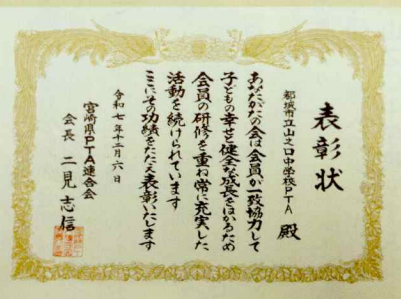 表彰状
都城市立山之口中学校PTA 殿
あなたがたの会は会員が一致協力して
子どもの幸せと健全な成長をはかるため
会員の研修を重ね常に充実した
活動を続けられています
ここにその功績をたたえ表彰いたします
令和七年十二月六日
宮崎県PTA連合会
会長 二見志信